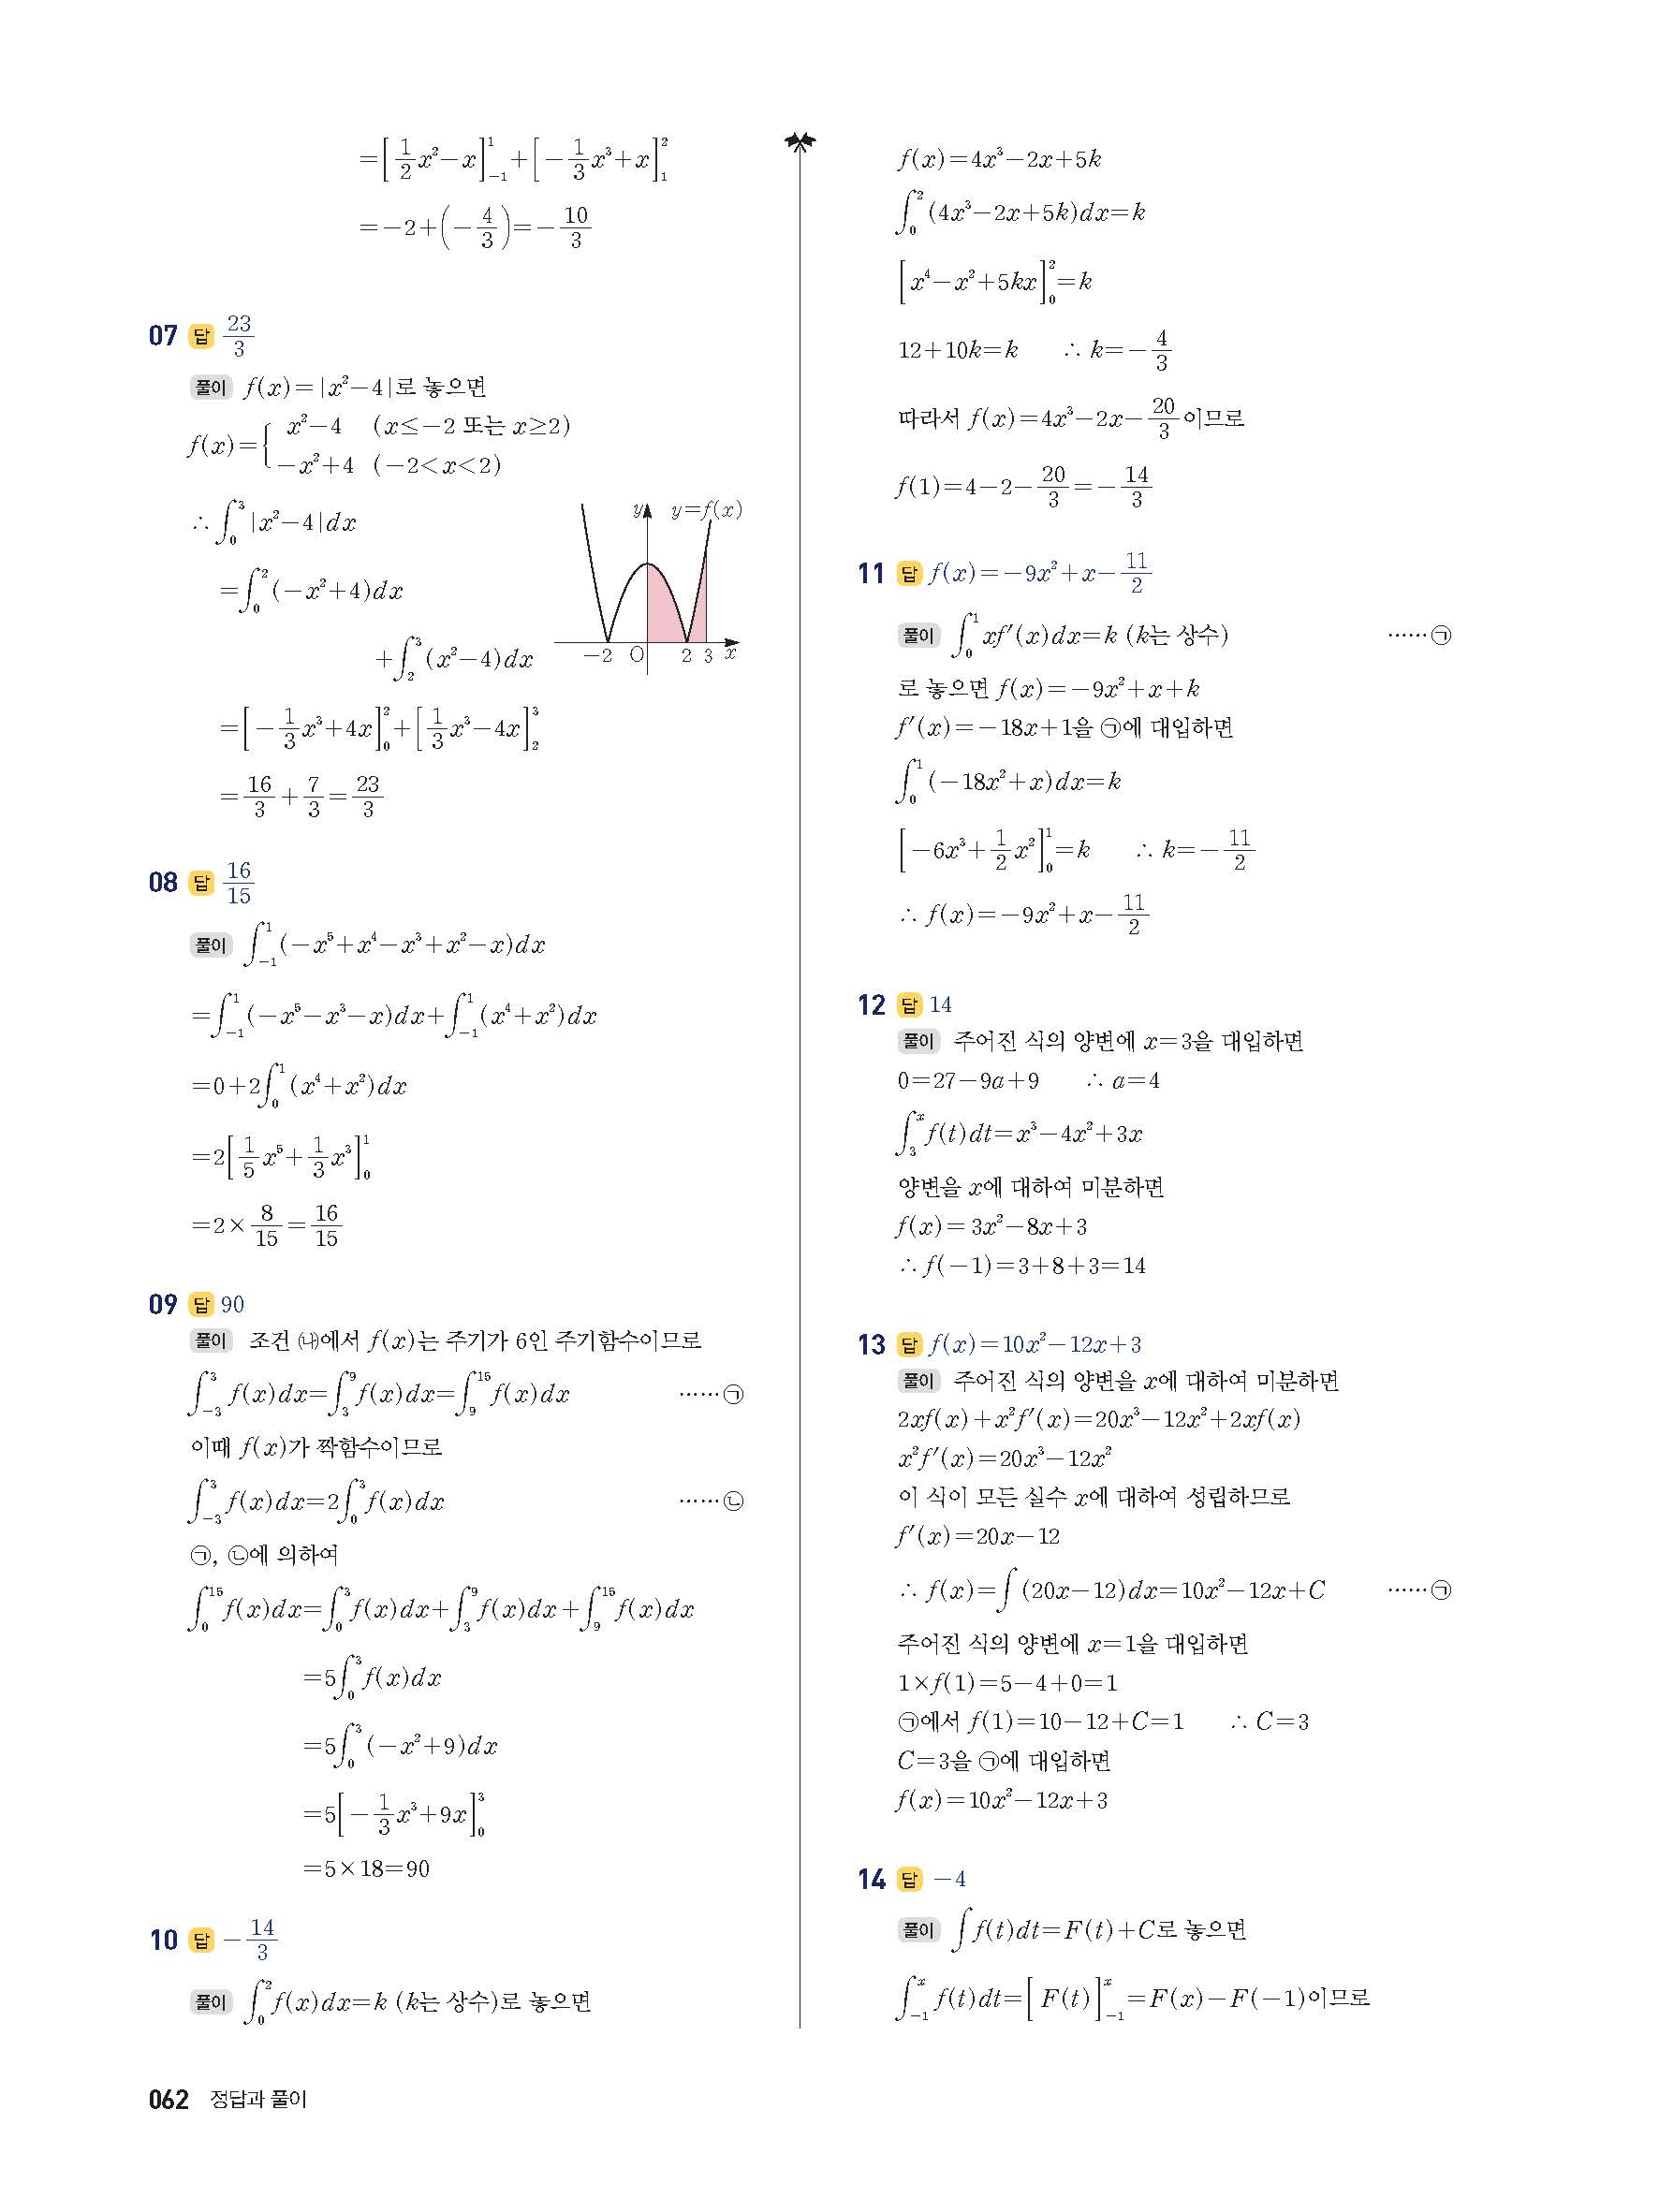 =[1/2x²-x]₋₁¹+[-1/3x³+x]₁²
=-2+(-4/3)=-10/3
07 답 23/3
풀이 f(x)=|x²-4|로 놓으면
f(x)={ x²-4 (x≤-2 또는 x≥2)
-x²+4 (-2<x<2)
∴ ∫₀³|x²-4|dx
=∫₀²(-x²+4)dx
+∫₂³(x²-4)dx
y y=f(x)
-2 O 2 3 x
=[-1/3x³+4x]₀²+[1/3x³-4x]₂³
=16/3+7/3=23/3
08 답 16/15
풀이 ∫₋₁¹(-x⁵+x⁴-x³+x²-x)dx
=∫₋₁¹(-x⁵-x³-x)dx+∫₋₁¹(x⁴+x²)dx
=0+2∫₀¹(x⁴+x²)dx
=2[1/5x⁵+1/3x³]₀¹
=2×8/15=16/15
09 답 90
풀이 조건 ㈏에서 f(x)는 주기가 6인 주기함수이므로
∫₋₃³f(x)dx=∫₃⁹f(x)dx=∫₉¹⁵f(x)dx ……㉠
이때 f(x)가 짝함수이므로
∫₋₃³f(x)dx=2∫₀³f(x)dx ……㉡
㉠, ㉡에 의하여
∫₀¹⁵f(x)dx=∫₀³f(x)dx+∫₃⁹f(x)dx+∫₉¹⁵f(x)dx
=5∫₀³f(x)dx
=5∫₀³(-x²+9)dx
=5[-1/3x³+9x]₀³
=5×18=90
10 답 -14/3
풀이 ∫₀²f(x)dx=k (k는 상수)로 놓으면
f(x)=4x³-2x+5k
∫₀²(4x³-2x+5k)dx=k
[x⁴-x²+5kx]₀²=k
12+10k=k ∴ k=-4/3
따라서 f(x)=4x³-2x-20/3이므로
f(1)=4-2-20/3=-14/3
11 답 f(x)=-9x²+x-11/2
풀이 ∫₀¹xf′(x)dx=k (k는 상수) ……㉠
로 놓으면 f(x)=-9x²+x+k
f′(x)=-18x+1을 ㉠에 대입하면
∫₀¹(-18x²+x)dx=k
[-6x³+1/2x²]₀¹=k ∴ k=-11/2
∴ f(x)=-9x²+x-11/2
12 답 14
풀이 주어진 식의 양변에 x=3을 대입하면
0=27-9a+9 ∴ a=4
∫₃ˣf(t)dt=x³-4x²+3x
양변을 x에 대하여 미분하면
f(x)=3x²-8x+3
∴ f(-1)=3+8+3=14
13 답 f(x)=10x²-12x+3
풀이 주어진 식의 양변을 x에 대하여 미분하면
2xf(x)+x²f′(x)=20x³-12x²+2xf(x)
x²f′(x)=20x³-12x²
이 식이 모든 실수 x에 대하여 성립하므로
f′(x)=20x-12
∴ f(x)=∫(20x-12)dx=10x²-12x+C ……㉠
주어진 식의 양변에 x=1을 대입하면
1×f(1)=5-4+0=1
㉠에서 f(1)=10-12+C=1 ∴ C=3
C=3을 ㉠에 대입하면
f(x)=10x²-12x+3
14 답 -4
풀이 ∫f(t)dt=F(t)+C로 놓으면
∫₋₁ˣf(t)dt=[F(t)]₋₁ˣ=F(x)-F(-1)이므로
062 정답과 풀이